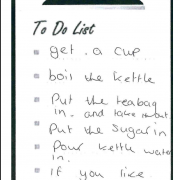 To Do List
get . a cup
boil the kettle
Put the teabag
in. and take it out
Put the sugar in
Pour kettle water
in.
if you like